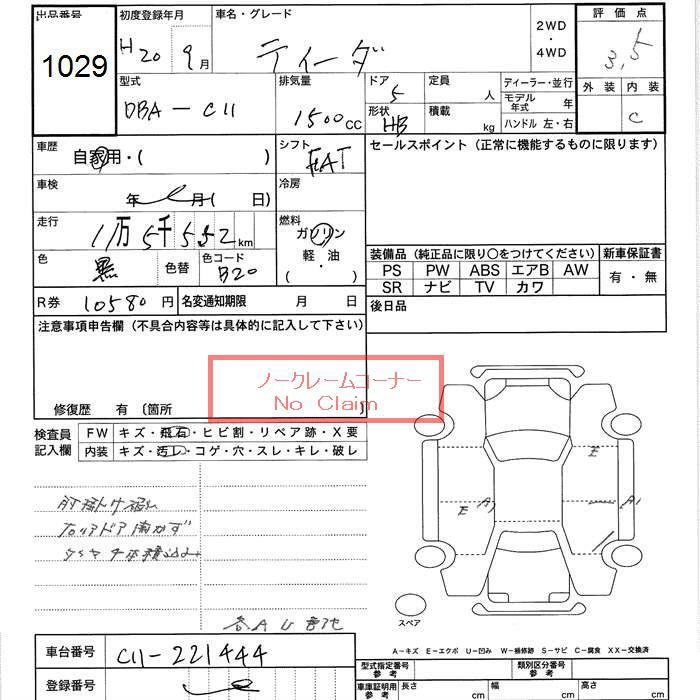 出品番号
1029
初度登録年月
H20 9月
車名・グレード
ティーダ
2WD
・
4WD
評価点
3.5
外装 内装
C
型式
DBA-C11
排気量
1500cc
ドア
5
形状
HB
定員
人
積載
kg
ディーラー・並行
モデル年式 年
ハンドル 左・右
車歴
自家用・( )
シフト
FAT
セールスポイント (正常に機能するものに限ります)
車検
年 月 ( 日)
冷房
走行
1万5千552km
燃料
ガソリン
軽・油
( )
色
黒
色替
色コード
B20
装備品 (純正品に限り○をつけてください)
新車保証書
PS PW ABS エアB AW
SR ナビ TV カワ
有・無
R券 10580円
名変通知期限 月 日
後日品
注意事項申告欄 (不具合内容等は具体的に記入して下さい)
ノークレームコーナー
No Claim
修復歴 有 〔箇所 〕
検査員記入欄
FW キズ・飛石・ヒビ割・リペア跡・X要
内装 キズ・汚レ・コゲ・穴・スレ・キレ・破レ
肘掛け
右リアドア開かず
タイヤ4本積込み
E
A1
E
A1
スペア
A-キズ E-エクボ U-凹み W-補修跡 S-サビ C-腐食 XX-交換済
車台番号 C11-221444
登録番号
型式指定番号 参考
類別区分番号 参考
車庫証明用 参考
長さ cm
幅 cm
高さ cm